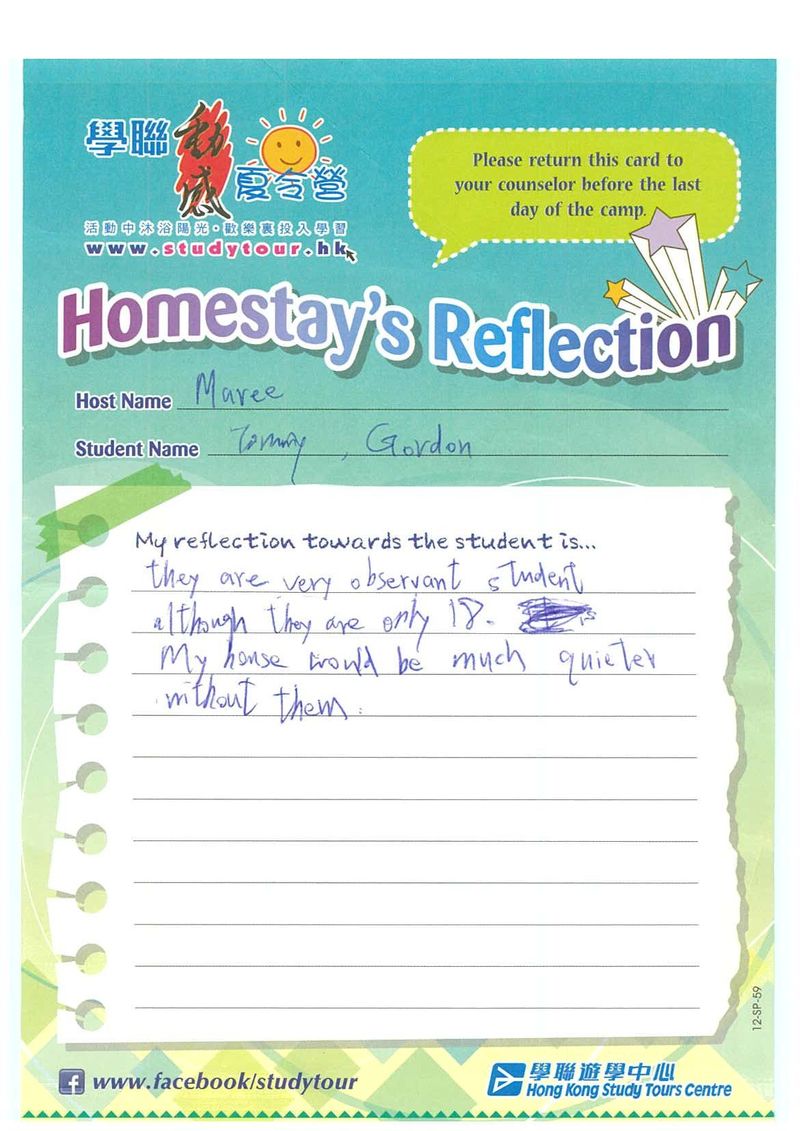 學聯動感夏令營
活動中沐浴陽光·歡樂裏投入學習
www.studytour.hk
Please return this card to
your counselor before the last
day of the camp.
Homestay's Reflection
Host Name Maree
Student Name Tommy, Gordon
My reflection towards the student is...
they are very observant student
although they are only 18.
My house would be much quieter
without them.
12-SP-59
www.facebook/studytour
學聯遊學中心
Hong Kong Study Tours Centre